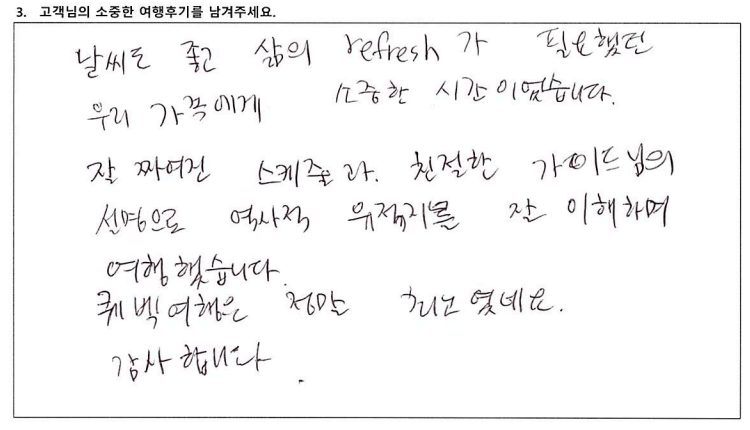 3. 고객님의 소중한 여행후기를 남겨주세요.
날씨도 좋고 삶의 refresh 가 필요했던
우리 가족에게 소중한 시간이었습니다.
잘 짜여진 스케쥴과. 친절한 가이드님의
설명으로 역사적 유적지를 잘 이해하며
여행했습니다.
퀘벡여행은 정말 최고였네요.
감사합니다.